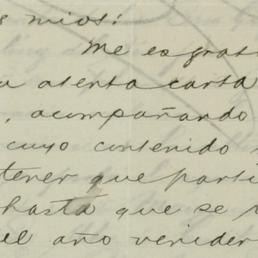 s mios:
Me es grat
a atenta carta
, acompañando
cuyo contenido
tener que parti
hasta que se
el año venider